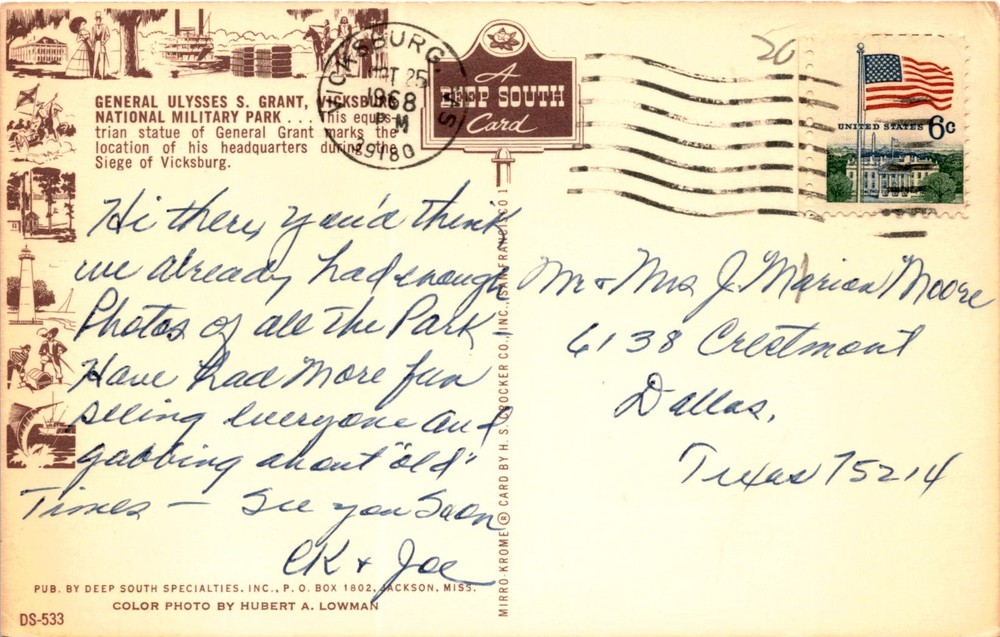 GENERAL ULYSSES S. GRANT, VICKSBURG
NATIONAL MILITARY PARK . . . This eques-
trian statue of General Grant marks the
location of his headquarters during the
Siege of Vicksburg.
VICKSBURG, MS
OCT 25
1968
PM
39180
A
DEEP SOUTH
Card
20
UNITED STATES 6c
Hi there, you'd think
we already had enough
Photos of all the Park -
Have had More fun
seeing everyone and
gabbing about "old"
Times - See you Soon
CK + Joe
Mr + Mrs J. Marion Moore
6138 Crestmont
Dallas,
Texas 75214
MIRRO-KROME ® CARD BY H. S. CROCKER CO., INC., SAN FRANCISCO 1
PUB. BY DEEP SOUTH SPECIALTIES, INC., P. O. BOX 1802, JACKSON, MISS.
COLOR PHOTO BY HUBERT A. LOWMAN
DS-533